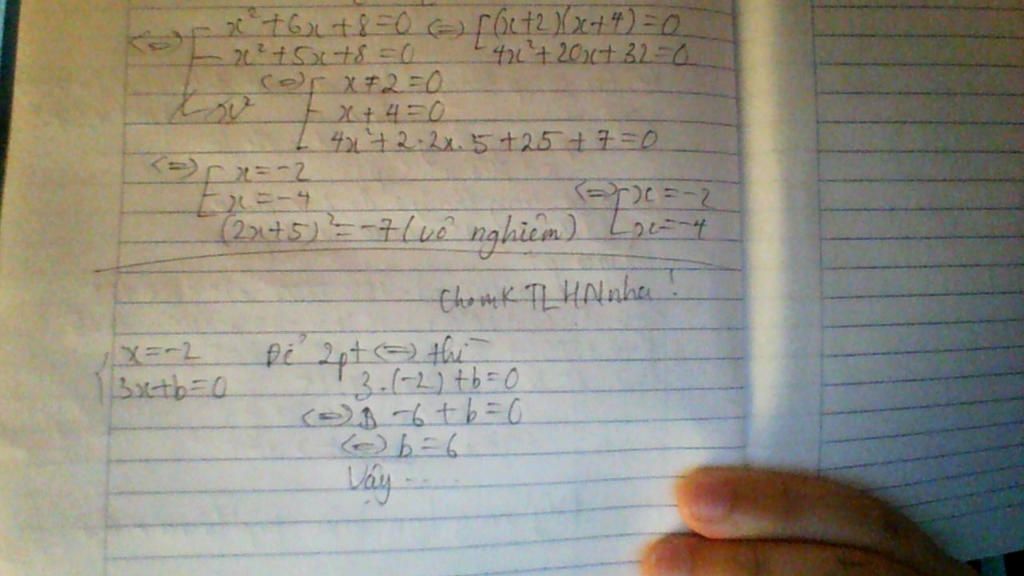 (=) [ x² + 6x + 8 = 0 (=) [ (x+2)(x+4) = 0
x² + 5x + 8 = 0 4x² + 20x + 32 = 0
(=) [ x + 2 = 0
x + 4 = 0
4x² + 2·2x·5 + 25 + 7 = 0
(=) [ x = -2
x = -4
(2x+5)² = -7 (vô nghiệm)
(=) [ x = -2
x = -4
Cho mk TLHN nha!
{ x = -2 Để 2pt (=) thì
3x + b = 0 3·(-2) + b = 0
(=) -6 + b = 0
(=) b = 6
Vậy ...